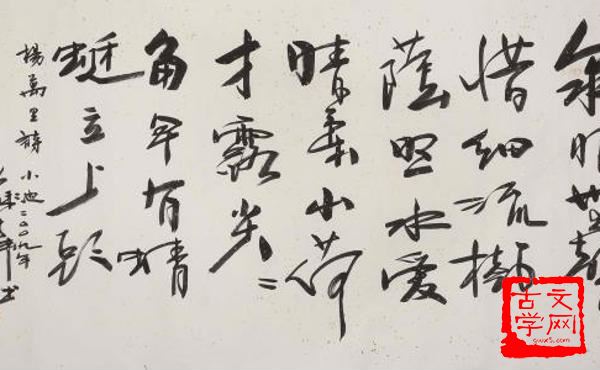 泉眼無聲
惜細流樹
蔭照水愛
晴柔小荷
才露尖〻
角早有蜻
蜓立上頭
楊萬里詩 小池 二〇〇九年
书
古文
学网